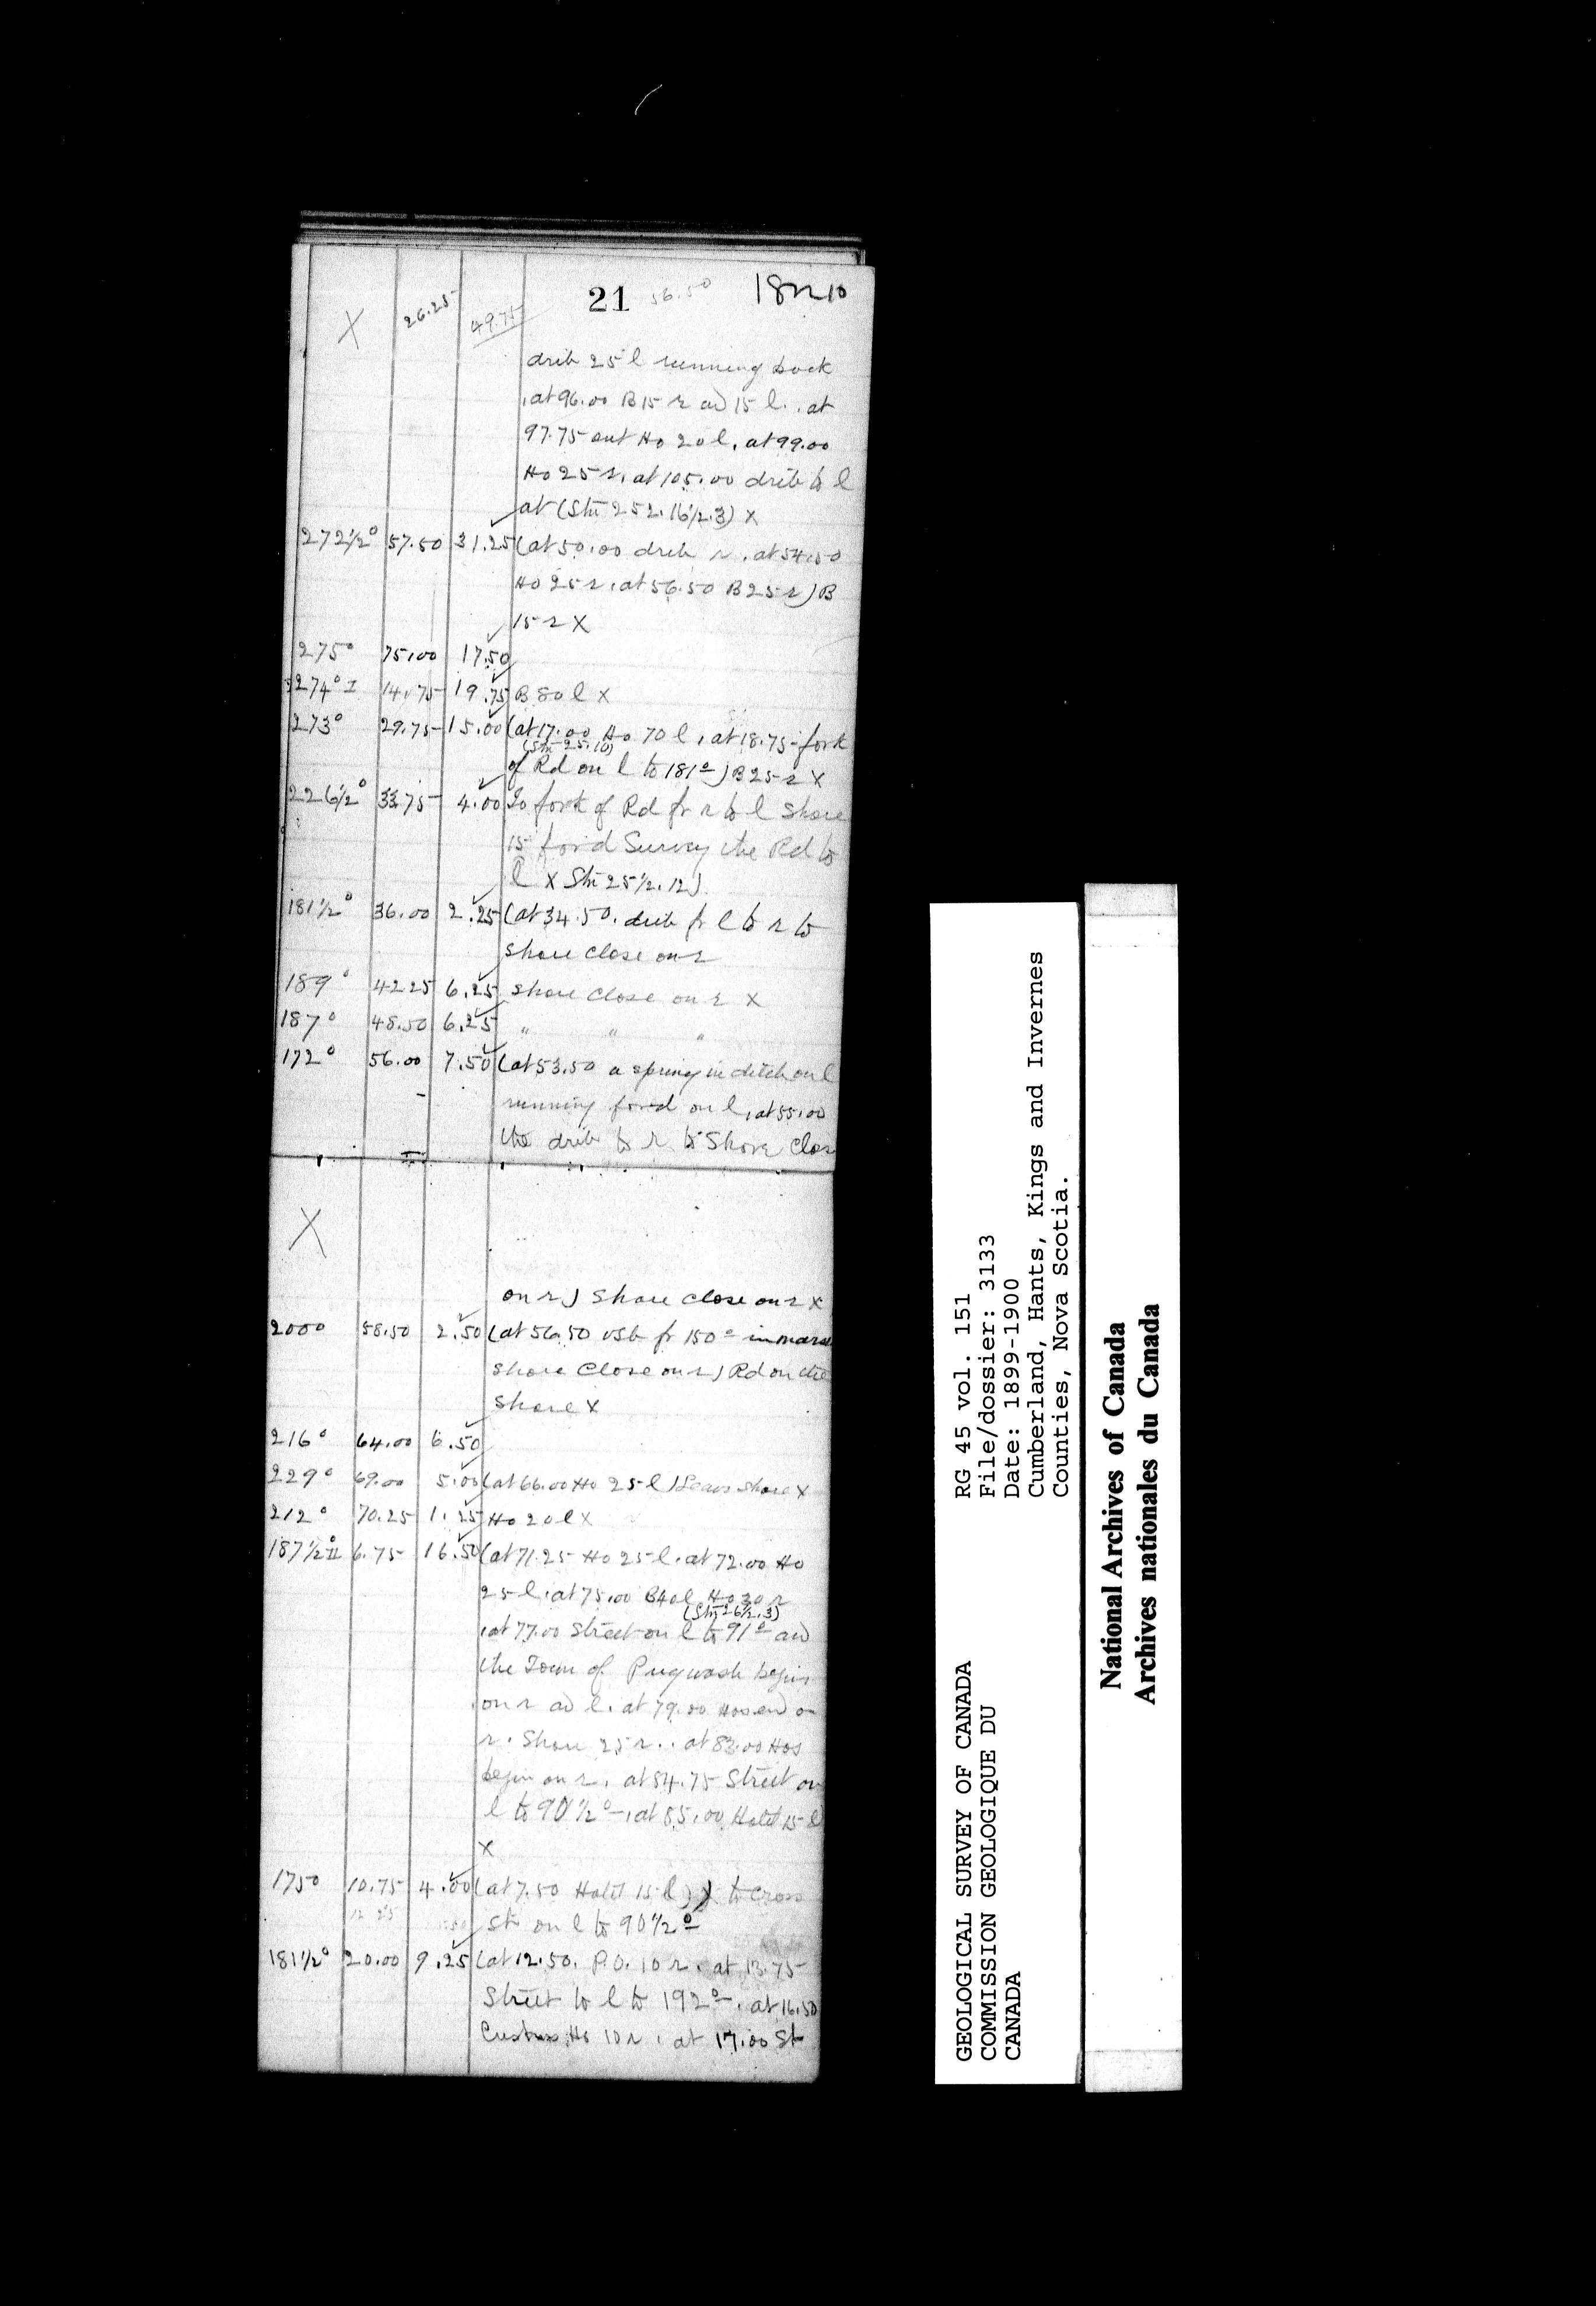 21 56.50 18 r 10
X 26.25 49.75
drib 25 l running back
, at 96.00 B 15 r and 15 l , at
97.75 out Ho 20 l , at 99.00
Ho 25 r , at 105.00 drib to l
at (Stn 252. 16 1/2. 3) X
272 1/2° 57.50 31.25 (at 50.00 drib r , at 54.50
Ho 25 r , at 56.50 B 25 r ) B
15 r X
275° 75.00 17.50
274° I 14.75 19.75 B 80 l X
273° 29.75 15.00 (at 17.00 Ho 70 l , at 18.75 fork
(Stn 25.10)
of Rd on l to 181° ) B 25 r X
226 1/2° 33.75 4.00 To fork of Rd fr r to l Shore
15 for'd Survey the Rd to
l X Stn 25 1/2. 12)
181 1/2° 36.00 2.25 (at 34.50. drib fr l to r to
shore close on r
189° 42.25 6.25 shore close on r X
187° 48.50 6.25 " " "
172° 56.00 7.50 (at 53.50 a spring in ditch on l
running for'd on l , at 55.00
the drib to r to Shore Close
X
on r ) Shore close on r X
200° 58.50 2.50 (at 56.50 fr 150° in marsh
Shore Close on r ) Rd on the
Shore X
216° 64.00 6.50
229° 69.00 5.00 (at 66.00 Ho 25 l ) Leave shore X
212° 70.25 1.25 Ho 20 l X
187 1/2° II 6.75 16.50 (at 71.25 Ho 25 l , at 72.00 Ho
25 l , at 75.00 B 40 l Ho 30 r
(Stn 26 1/2. 3)
, at 77.00 Street on l to 91° and
the Town of Pugwash begins
on r and l , at 79.00 Hos end on
r . Shore 25 r . , at 83.00 Hos
begin on r , at 84.75 Street on
l to 90 1/2° , at 85.00 Hotel 15 l
X
175° 10.75 4.00 (at 7.50 Hotel 15 l ) X to Cross
St on l to 90 1/2°
181 1/2° 20.00 9.25 (at 12.50. P.O. 10 r , at 13.75
Street to l to 192° , at 16.50
Customs Ho 10 r , at 17.00 St
GEOLOGICAL SURVEY OF CANADA
COMMISSION GEOLOGIQUE DU
CANADA
RG 45 vol. 151
File/dossier: 3133
Date: 1899-1900
Cumberland, Hants, Kings and Invernes
Counties, Nova Scotia.
National Archives of Canada
Archives nationales du Canada